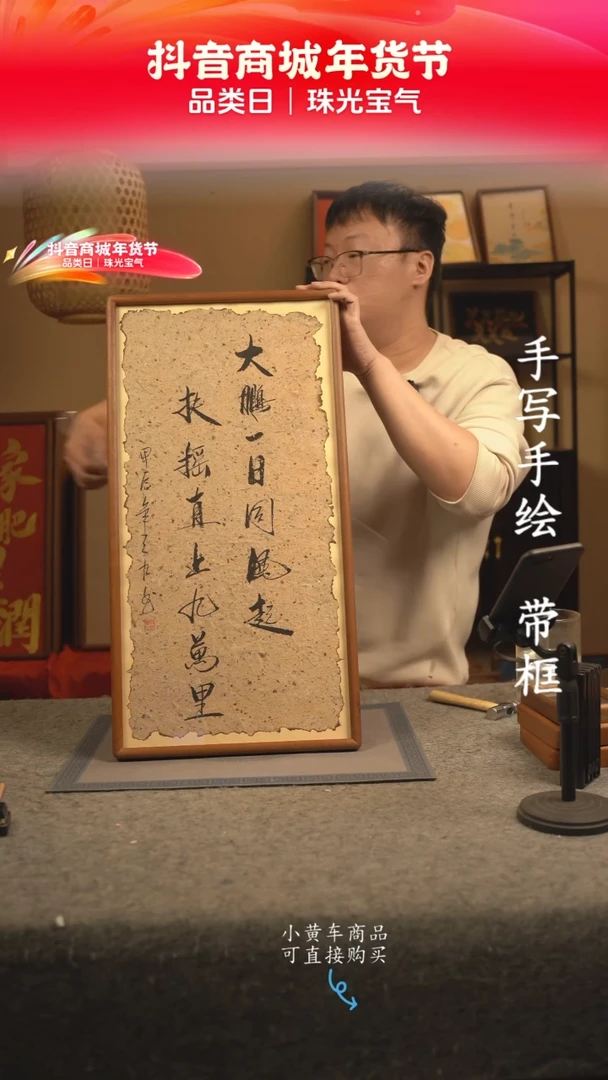 抖音商城年货节
品类日｜珠光宝气
抖音商城年货节
品类日｜珠光宝气
大鹏一日同风起
扶摇直上九萬里
甲辰年
手写手绘 带框
家肥屋潤
小黄车商品
可直接购买